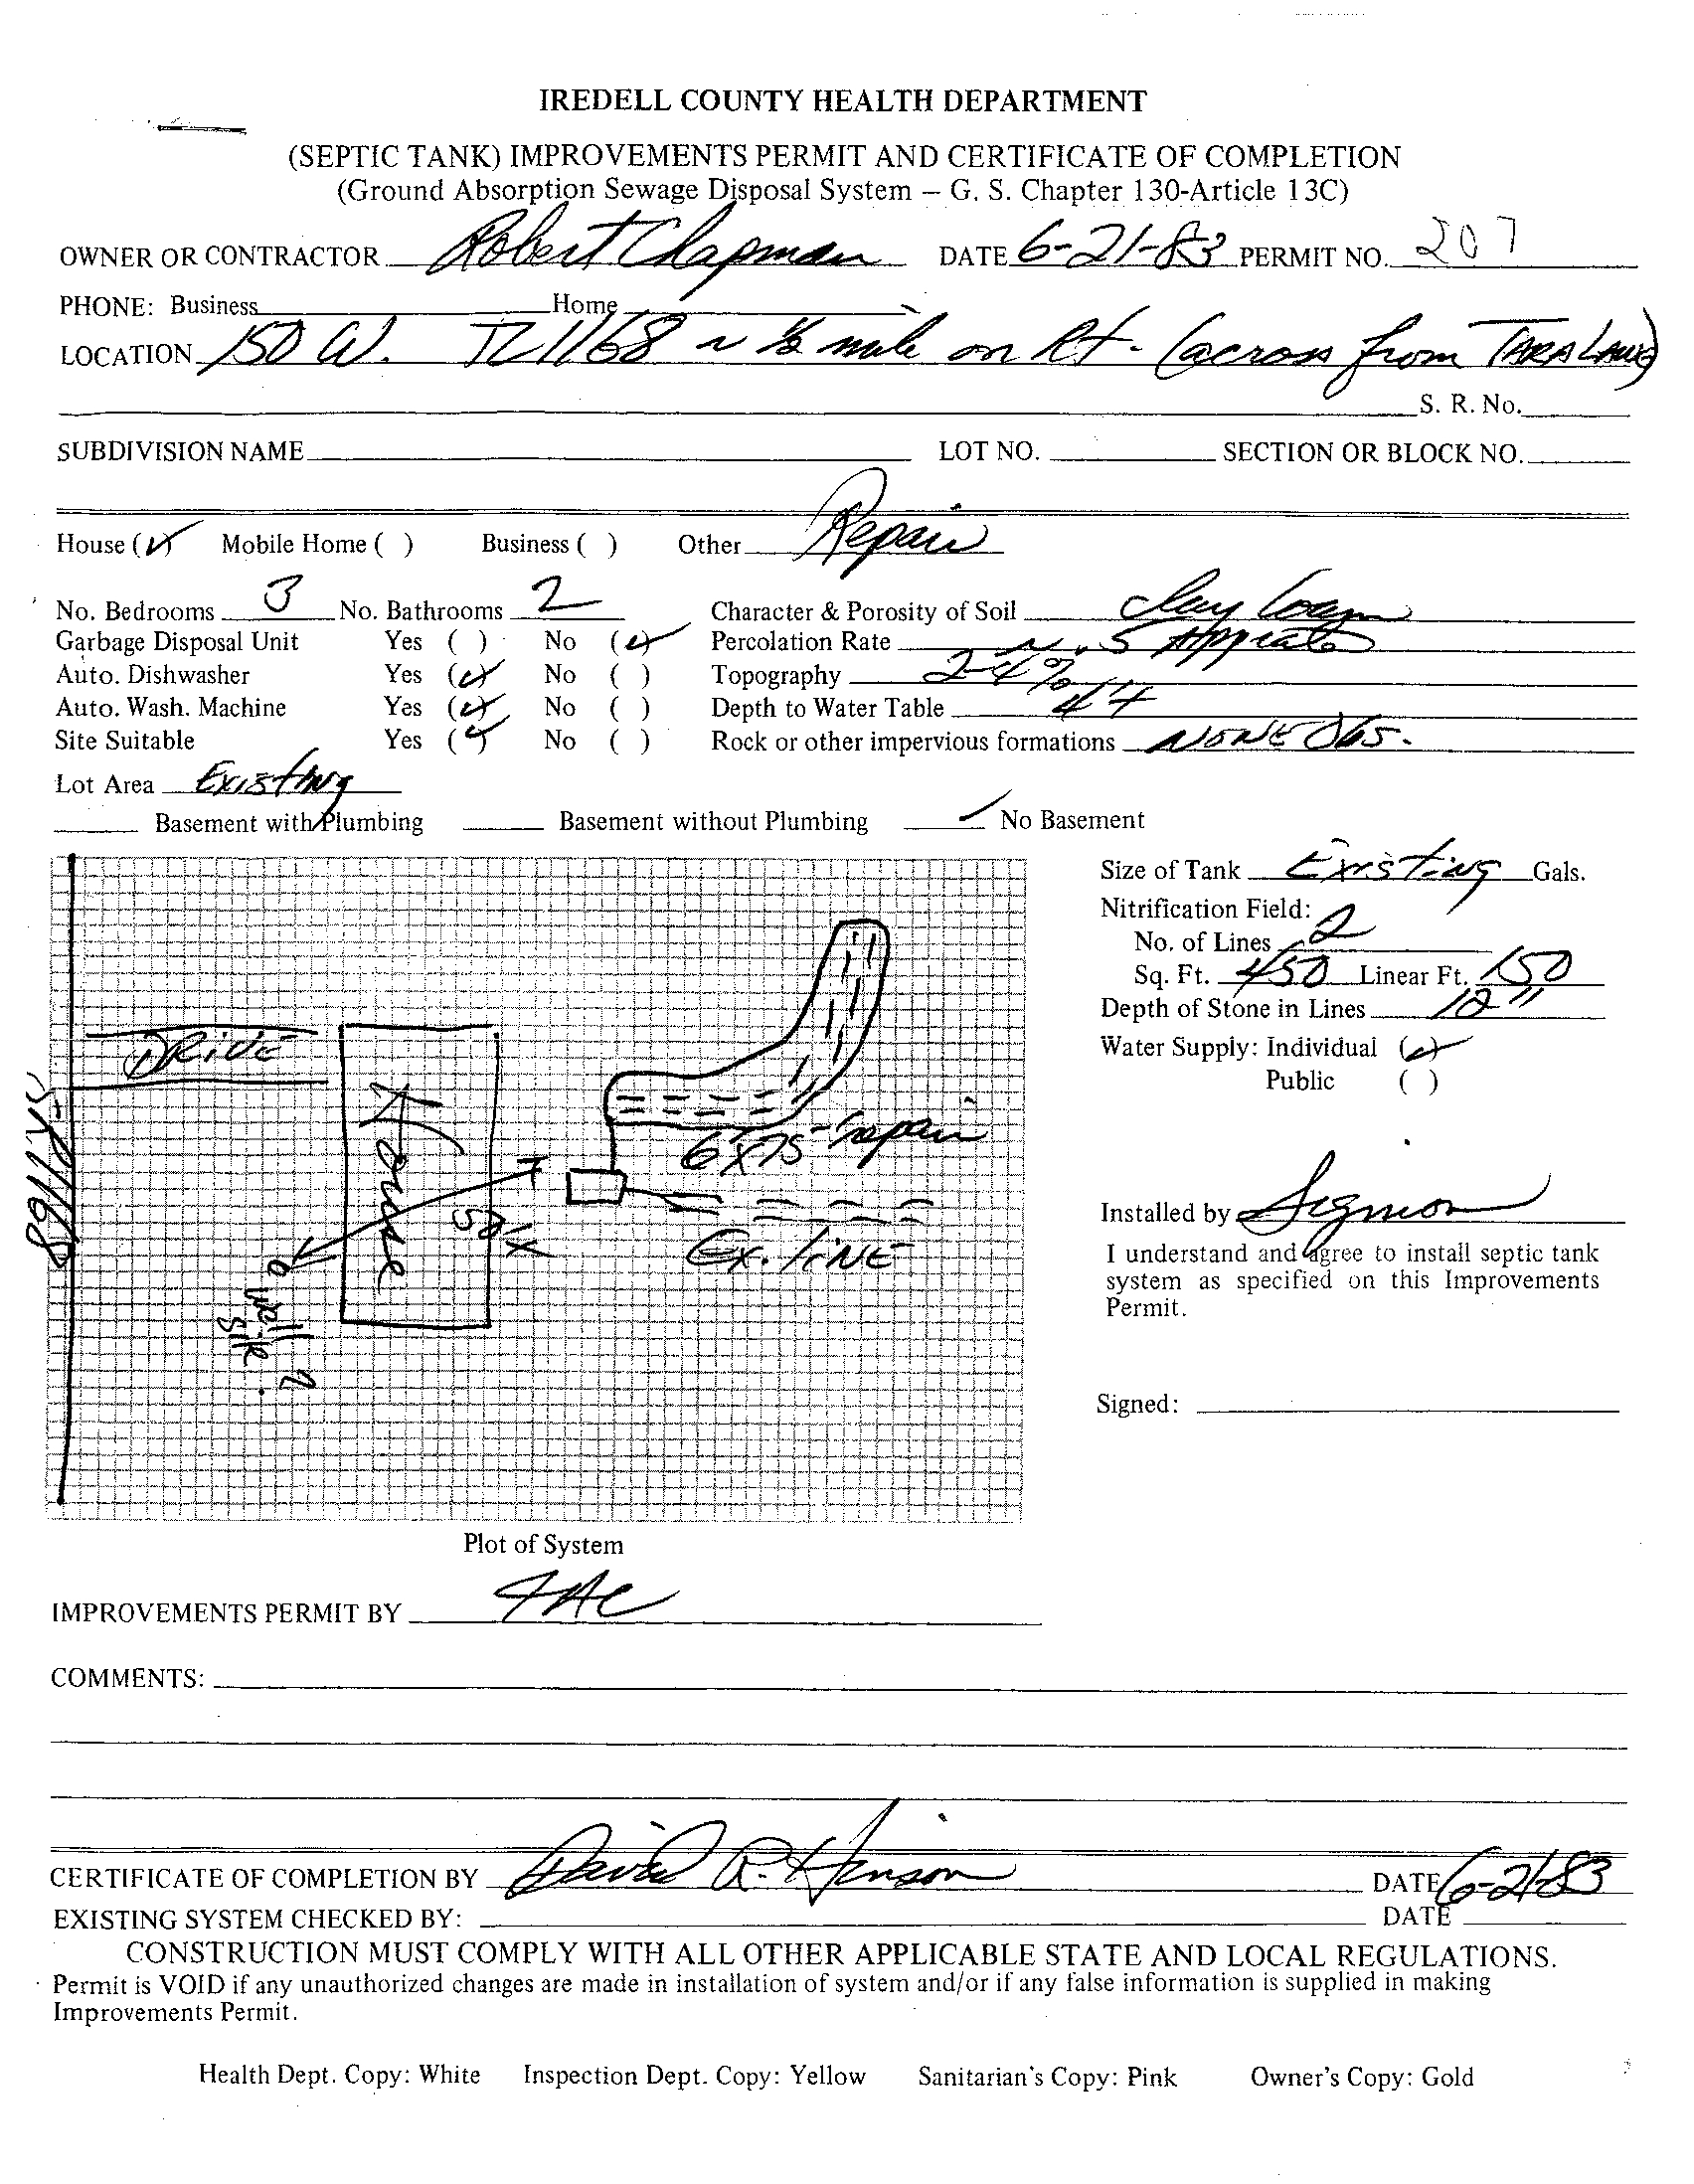 IREDELL COUNTY HEALTH DEPARTMENT
(SEPTIC TANK) IMPROVEMENTS PERMIT AND CERTIFICATE OF COMPLETION
(Ground Absorption Sewage Disposal System – G. S. Chapter 130-Article 13C)
OWNER OR CONTRACTOR Robert Chapman DATE 6-21-83 PERMIT NO. 207
PHONE: Business Home
LOCATION 150 W. TL 1168 ~ ½ mile on Rt. (across from TARA LAWS)
S. R. No.
SUBDIVISION NAME LOT NO. SECTION OR BLOCK NO.
House (✓) Mobile Home ( ) Business ( ) Other Repair
No. Bedrooms 3 No. Bathrooms 2 Character & Porosity of Soil Clay Loam
Garbage Disposal Unit Yes ( ) No (✓) Percolation Rate ~ .5
Auto. Dishwasher Yes (✓) No ( ) Topography 2-4%
Auto. Wash. Machine Yes (✓) No ( ) Depth to Water Table
Site Suitable Yes (✓) No ( ) Rock or other impervious formations NONE Obs.
Lot Area Existing
Basement with Plumbing Basement without Plumbing ✓ No Basement
Size of Tank Existing Gals.
Nitrification Field:
No. of Lines 2
Sq. Ft. 450 Linear Ft. 150
Depth of Stone in Lines 12"
Water Supply: Individual (✓)
Public ( )
DRIVE
House
SR 1168
6'x75' repair
Ex. LINE
well
site
?
Installed by Sigmon
I understand and agree to install septic tank
system as specified on this Improvements
Permit.
Signed:
Plot of System
IMPROVEMENTS PERMIT BY
COMMENTS:
CERTIFICATE OF COMPLETION BY David A. Henson DATE 6-21-83
EXISTING SYSTEM CHECKED BY: DATE
CONSTRUCTION MUST COMPLY WITH ALL OTHER APPLICABLE STATE AND LOCAL REGULATIONS.
Permit is VOID if any unauthorized changes are made in installation of system and/or if any false information is supplied in making
Improvements Permit.
Health Dept. Copy: White Inspection Dept. Copy: Yellow Sanitarian's Copy: Pink Owner's Copy: Gold